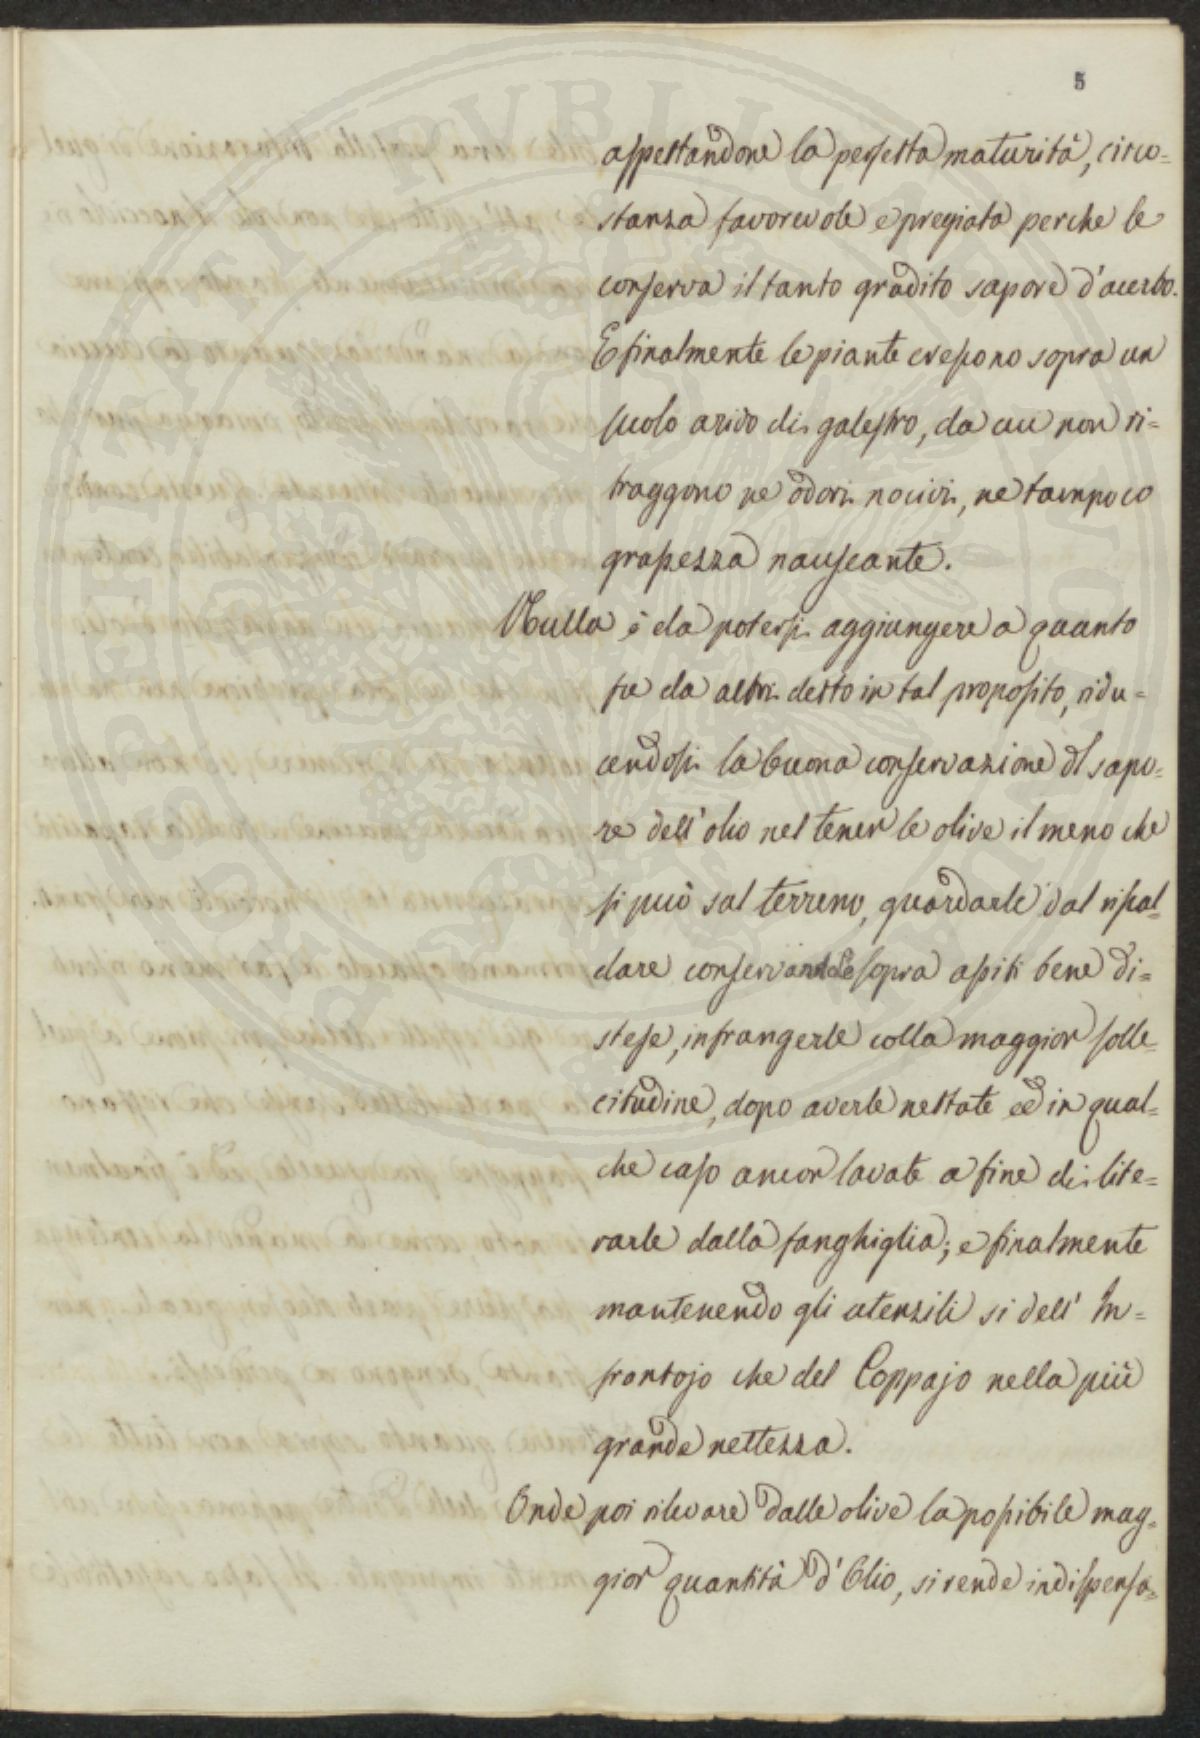 5
aspettandone la perfetta maturità, circo=
stanza favorevole e pregiata perche le
conserva il tanto gradito sapore d'acerbo.
E finalmente le piante crescono sopra un
suolo arido di galestro, da cui non ri=
traggono ne odori nocivi, ne tampoco
grassezza nauseante.
Nulla è da potersi aggiungere a quanto
fu da altri detto in tal proposito, ridu=
cendosi la buona conservazione del sapo=
re dell'olio nel tener le olive il meno che
si può sul terreno, guardarle dal riscal=
dare conservandole sopra assiti bene di=
stese, infrangerle colla maggior solle=
citudine, dopo averle nettate ed in qual=
che caso ancor lavate a fine di libe=
rarle dalla fanghiglia; e finalmente
mantenendo gli utenzili si dell' In=
frantojo che del Coppajo nella più
grande nettezza.
Onde poi rilevare dalle olive la possibile mag=
gior quantità d'Olio, si rende indispensa=
PROSPERITATI PVBLICAE AVGENDAE